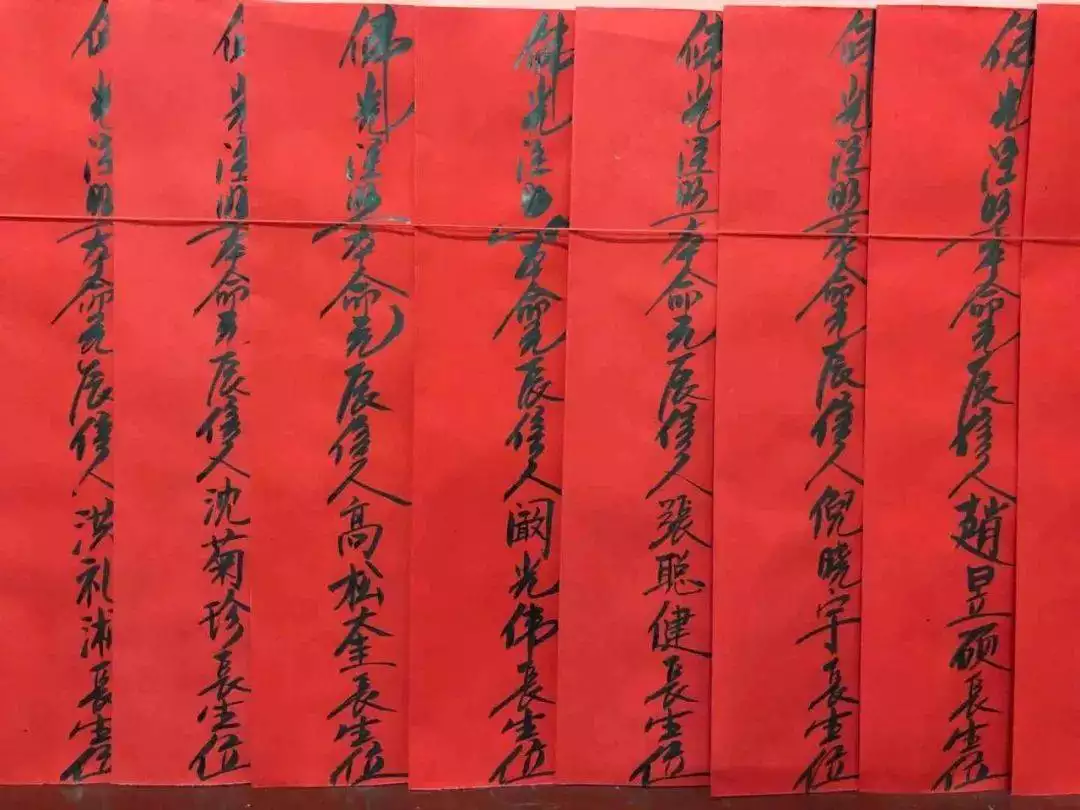 佛光注照本命元辰信人趙昱硕長生位
佛光注照本命元辰信人倪晓宇長生位
佛光注照本命元辰信人張聪健長生位
佛光注照本命元辰信人阚光伟長生位
佛光注照本命元辰信人高松奎長生位
佛光注照本命元辰信人沈菊珍長生位
佛光注照本命元辰信人洪礼長生位